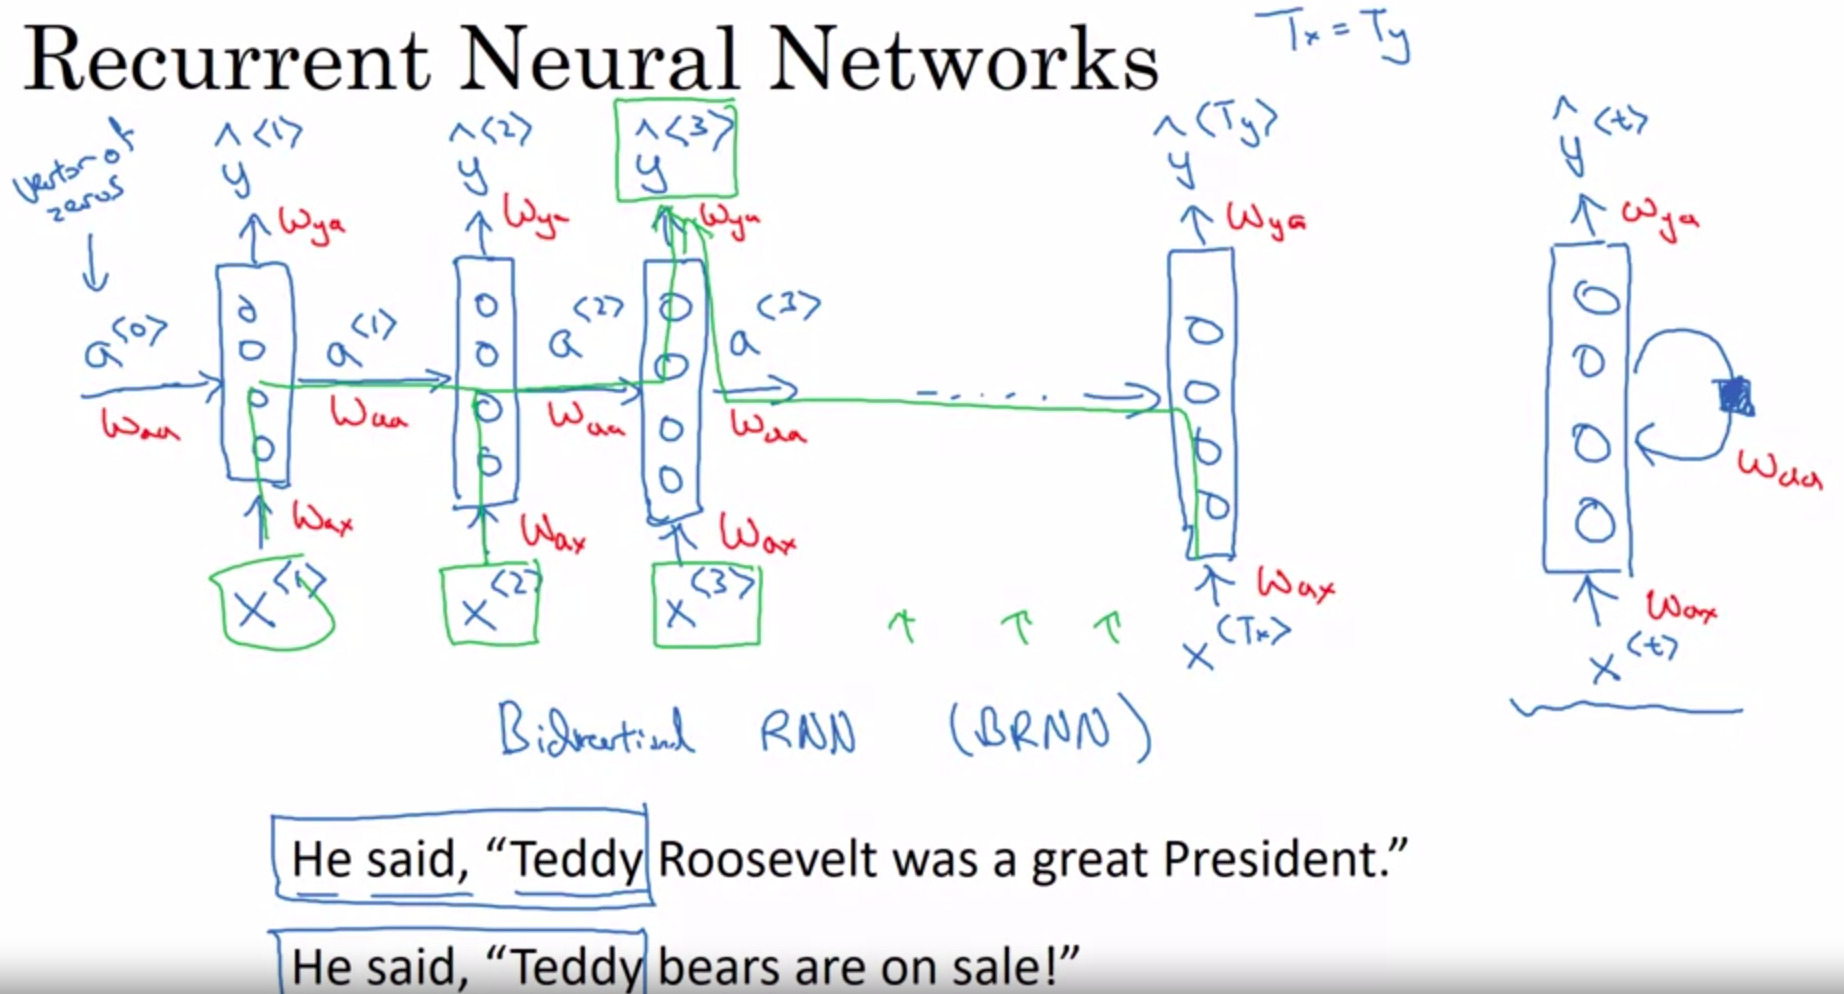 Recurrent Neural Networks
Tx = Ty
vector of
zeros
ŷ<1> ŷ<2> ŷ<3> ŷ<Ty> ŷ<t>
Wya Wya Wya Wya Wya
a<0> a<1> a<2> a<3>
- . . . .
Waa Waa Waa Waa Waa
Wax Wax Wax Wax Wax
x<1> x<2> x<3> x<Tx> x<t>
Bidirectional RNN (BRNN)
He said, “Teddy Roosevelt was a great President.”
He said, “Teddy bears are on sale!”